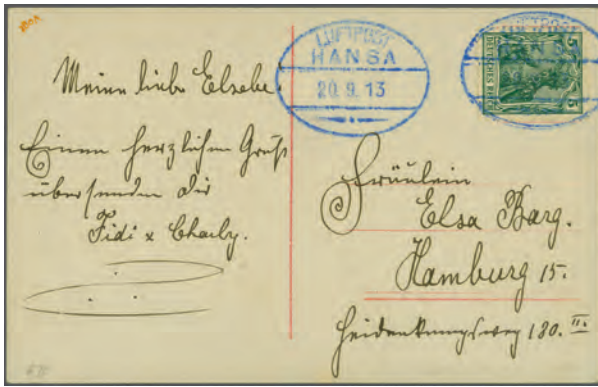 Meine liebe Elsebe.
Einen herzlichen Gruß
übersenden Dir
Fidi x Charly.
LUFTPOST
HANSA
20.9.13
5 DEUTSCHES REICH 5
LUFTPOST
Fräulein
Elsa Barg.
Hamburg 15.
Heidenkampsweg 130. II.